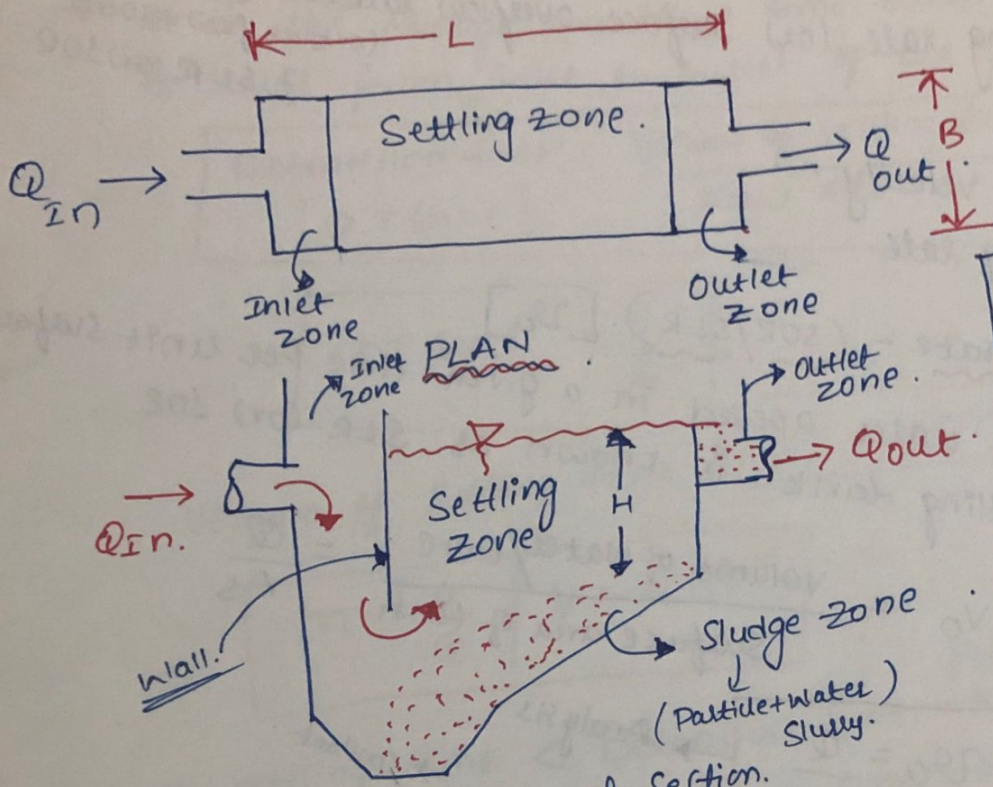 L
Settling zone.
B
Q In
Q out
Inlet zone
Outlet zone
PLAN
Inlet zone
Outlet zone.
QIn.
Settling zone
H
Qout.
Wall.
Sludge zone
(Particle+water)
Slurry.
Section.